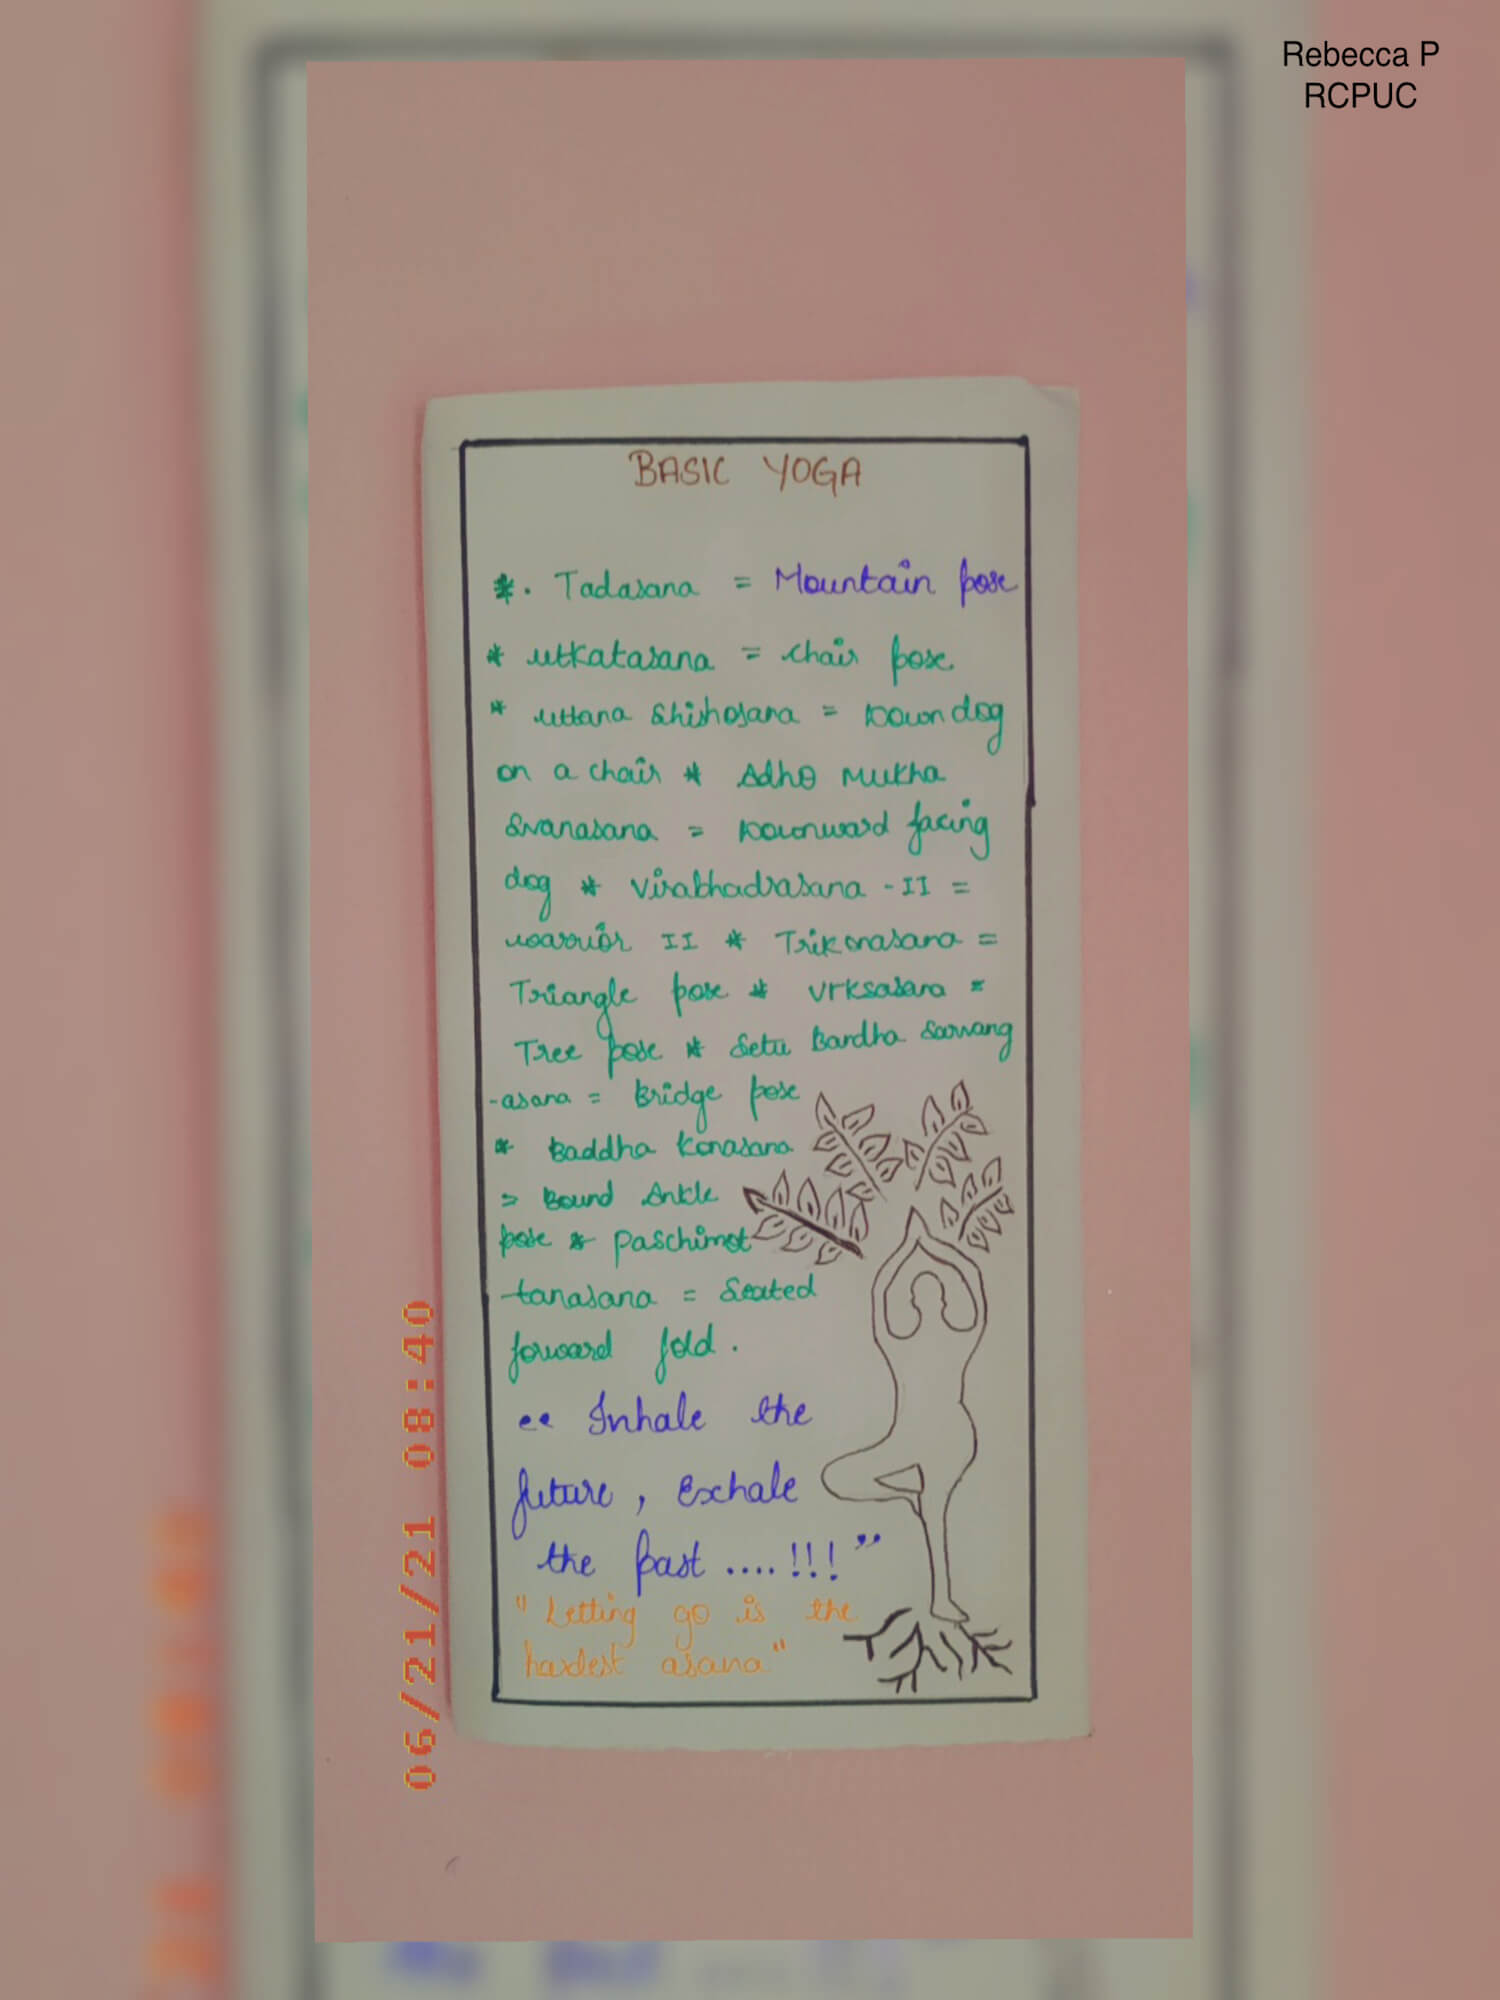 Rebecca P
RCPUC
BASIC YOGA
*. Tadasana = Mountain pose
* utkatasana = chair pose.
* uttana Shishosana = Down dog
on a chair * Adho Mukha
Svanasana = Downward facing
dog * Virabhadrasana - II =
warrior II * Trikonasana =
Triangle pose * Vrksasana =
Tree pose * Setu Bandha Sarvang
-asana = Bridge pose
* Baddha Konasana
= Bound Ankle
pose * Paschimot
-tanasana = Seated
forward fold.
"Inhale the
future, Exhale
the past ....!!!"
"Letting go is the
hardest asana"
06/21/21 08:40